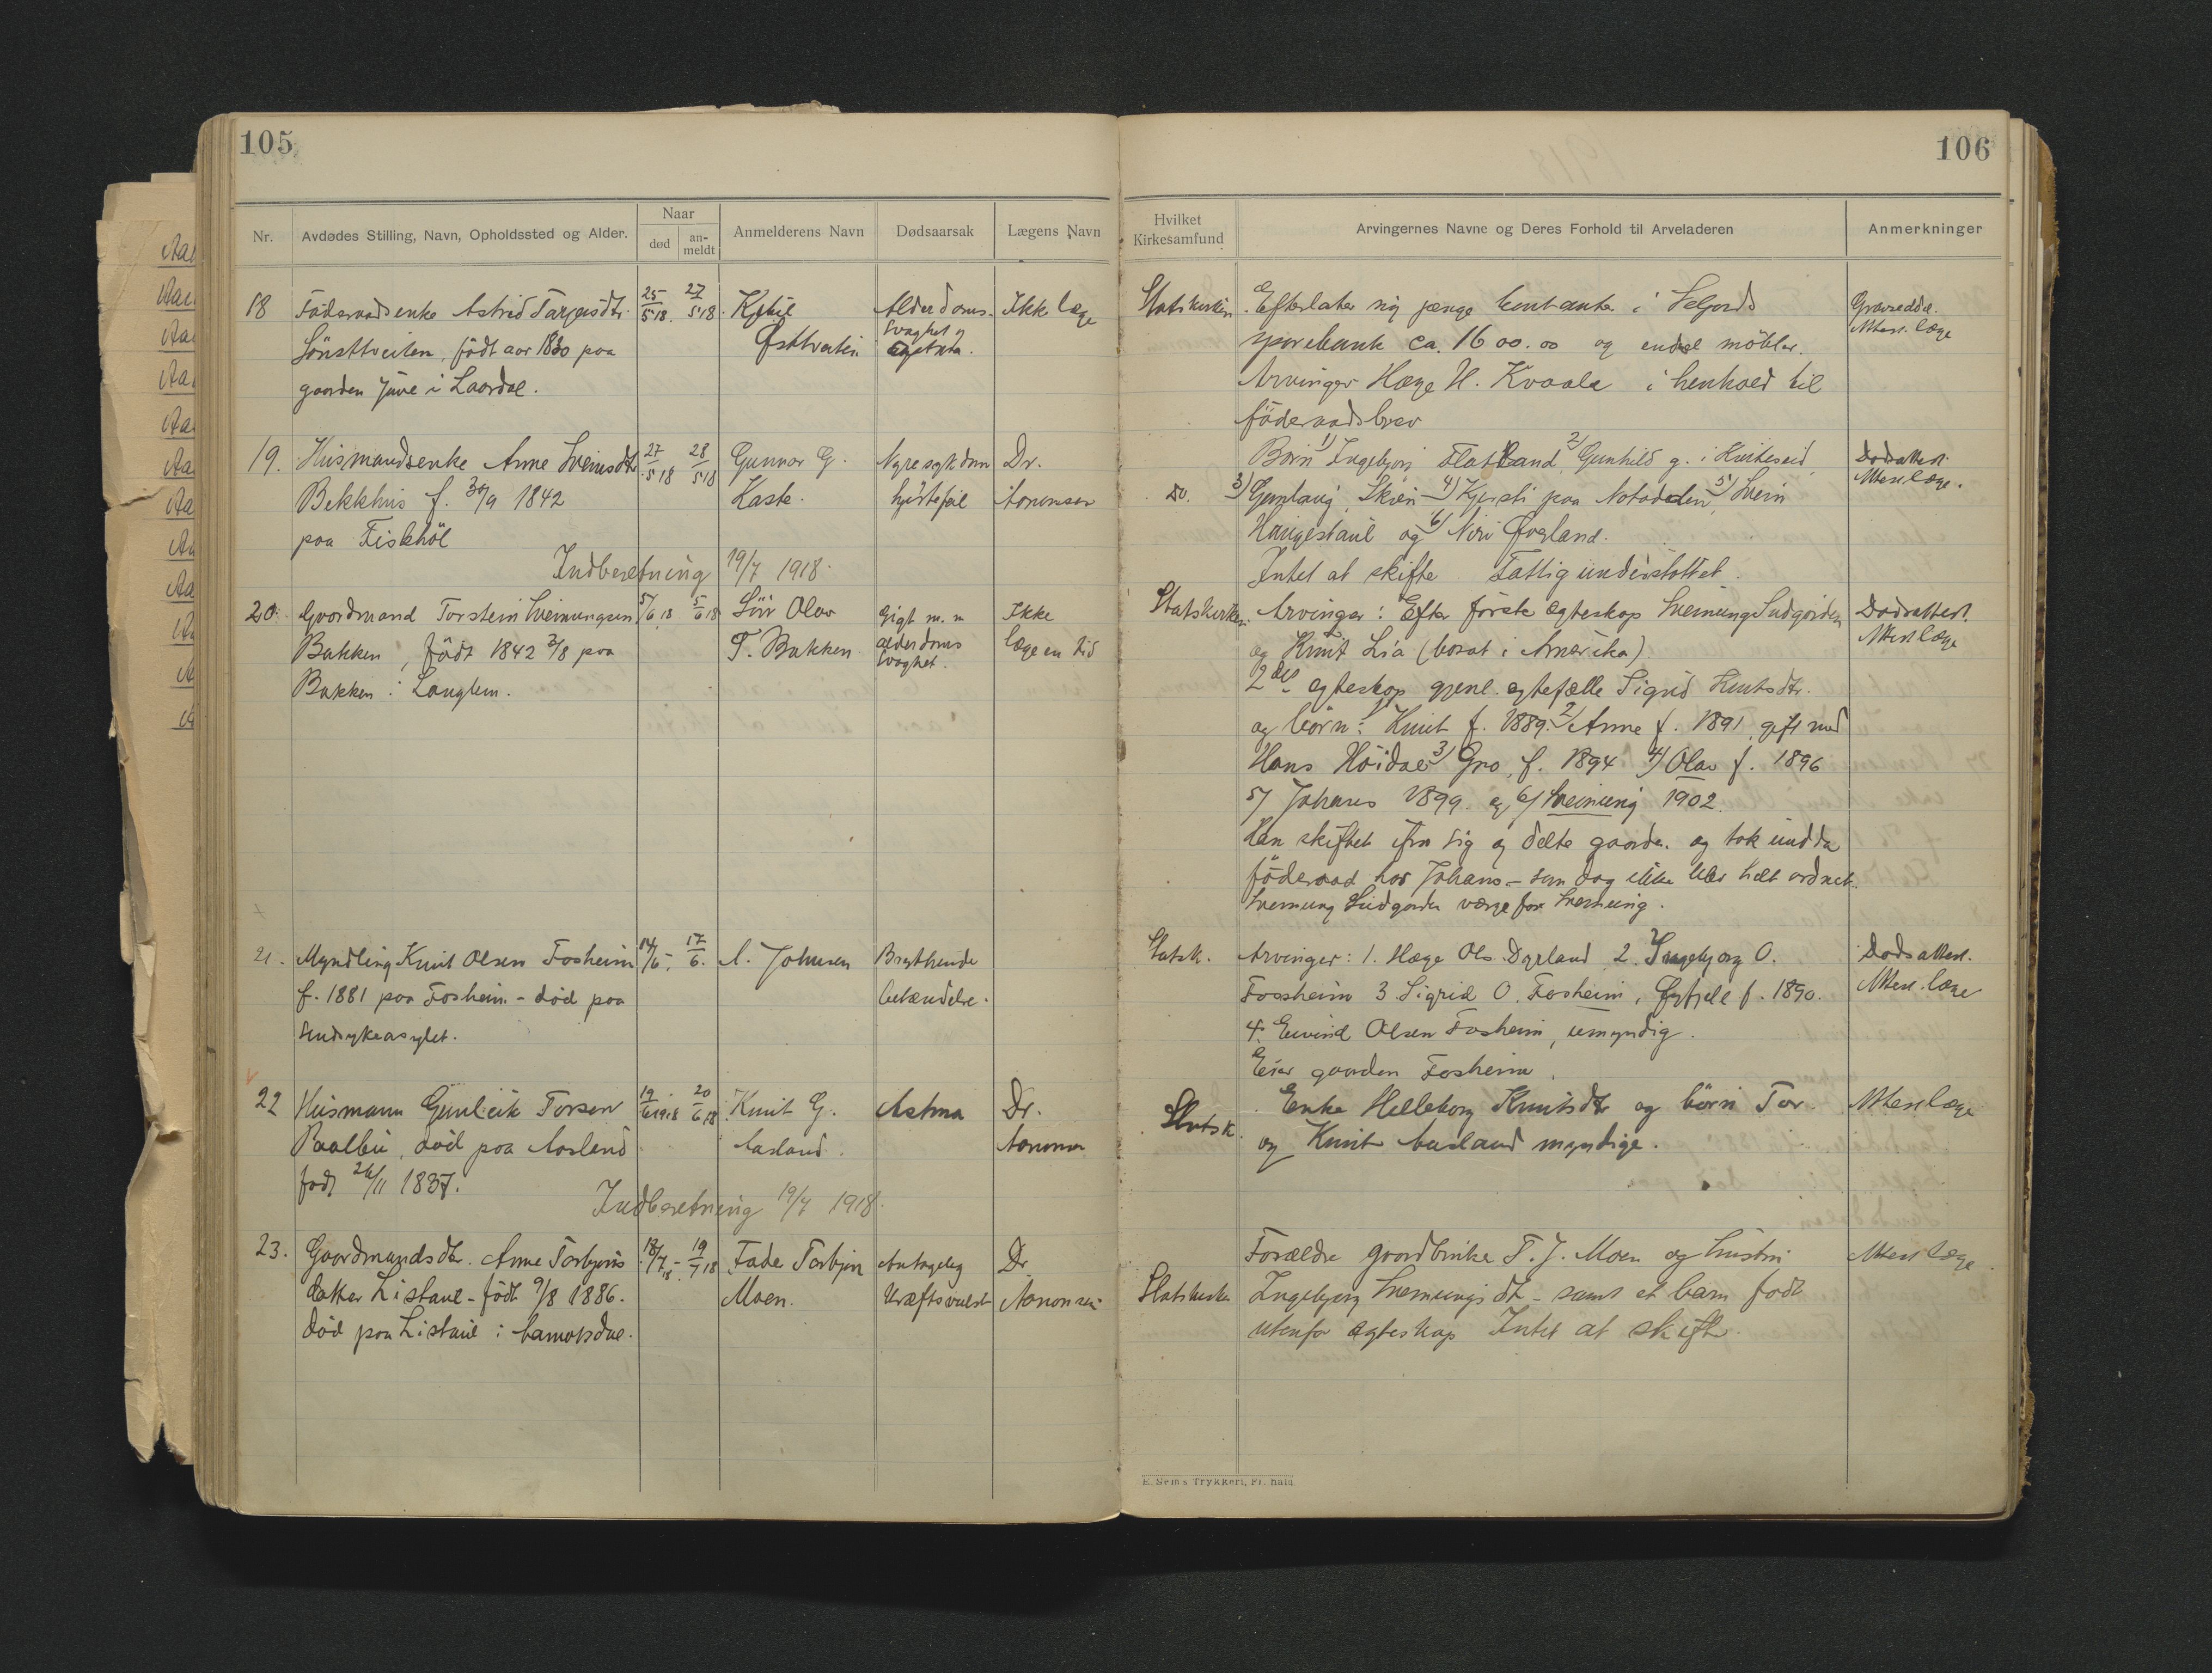 105
Nr.
Avdødes Stilling, Navn, Opholdssted og Alder.
Naar
død
an-
meldt
Anmelderens Navn
Dødsaarsak
Lægens Navn
18
Föderaadsenke Astrid Targeisdtr.
Lönsttveiten, født aar 1830 paa
gaarden Juve i Laardal.
25/5 18.
27/5 18
Kjetil
Østtveiten
Alderdoms-
svaghet og
Ikke læge
19.
Husmandsenke Anne Sveinsdtr
Bekkhus f. 30/9 1842
paa Fiskhöl
27/5 18
28/5 18
Gunnar G.
Kaste.
Nyresykdom
hjertefeil
Dr.
Aanonsen
Indberetning 19/7 1918.
20.
Gaardmand Torstein Sveinungsen
Bakken, födt 1842 2/8 paa
Bakken i Langlem.
5/6 18
5/6 18
Sön Olav
T. Bakken
Gigt m. m
alderdoms
svaghet.
Ikke
læge en tid
21.
Myndling Knut Olsen Fosheim
f. 1881 paa Fosheim - död paa
sindsykeasylet.
14/6.
17/6.
A. Johnsen
Brysthinde
betændelse.
22
Husmann Gunleik Torsen
Paalbu, död paa Aasland
født 26/11 1837.
19/6 1918
20/6 18
Knut G.
Aasland.
Astma
Dr.
Aanonsen
Indberetning 19/7 1918.
23.
Gaardmandsdtr. Anne Torbjörns
datter Listaul - födt 9/8 1886.
död paa Listaul i Aamotsdal.
18/7 18
19/7 18
Fader Torbjörn
Moen.
Antagelig
kræftsvulst
Dr
Aanonsen
106
1918
Hvilket
Kirkesamfund
Arvingernes Navne og Deres Forhold til Arveladeren
Anmerkninger
Statskirken
Efterlater sig penge kontanter i Seljords
sparebank ca. 1600.00 og endel möbler.
Arvinger Hæge H. Kvaale i henhold til
föderaadsbrev
Attest. læge
Do.
Börn 1) Ingebjörg Flatland, 2) Gunhild g. i Kviteseid,
3) Gunlaug, Skien 4) Kjersti paa Notodden, 5) Svein
Haugestaul og 6) Niri Øvrland.
Intet at skifte Fattigunderstöttet.
Dødsattest.
Attest læge.
Statskirken
Arvinger: Efter förste egteskap Sveinung Sudgarden
og Knut Lia (bosat i Amerika)
2det egteskap gjenl. egtefælle Sigrid Knutsdtr.
og börn: 1) Knut f. 1889. 2) Anne f. 1891, gift med
Hans Höidal 3) Gro, f. 1894 4) Olav f. 1896
5) Johans 1899. og 6) Sveinung 1902.
Han skiftet ifra sig og delte gaarden og tok undda
föderaad hos Johans - som dog ikke blev helt ordnet.
Sveinung Sudgarden værge for Sveinung.
Dødsattest.
Attest læge
Statsk.
Arvinger: 1. Hæge Ols. Dyrland 2. Ingebjorg O.
Fossheim 3 Sigrid O. Fosheim, Øyfjell f. 1890.
4. Eivind Olsen Fosheim, umyndig.
Eier gaarden Fosheim.
Dødsattest.
Attest. læge
Statsk.
Enke Helleborg Knutsdtr og börn Tor
og Knut Aasland myndige.
Attest læge
Statskirken
Forældre gaardbruker T. J. Moen og hustru
Ingebjörg Sveinungsdtr - samt et barn født
utenfor egteskap Intet at skifte.
Attest læge
E. Sem's Trykkeri, Fr. hald